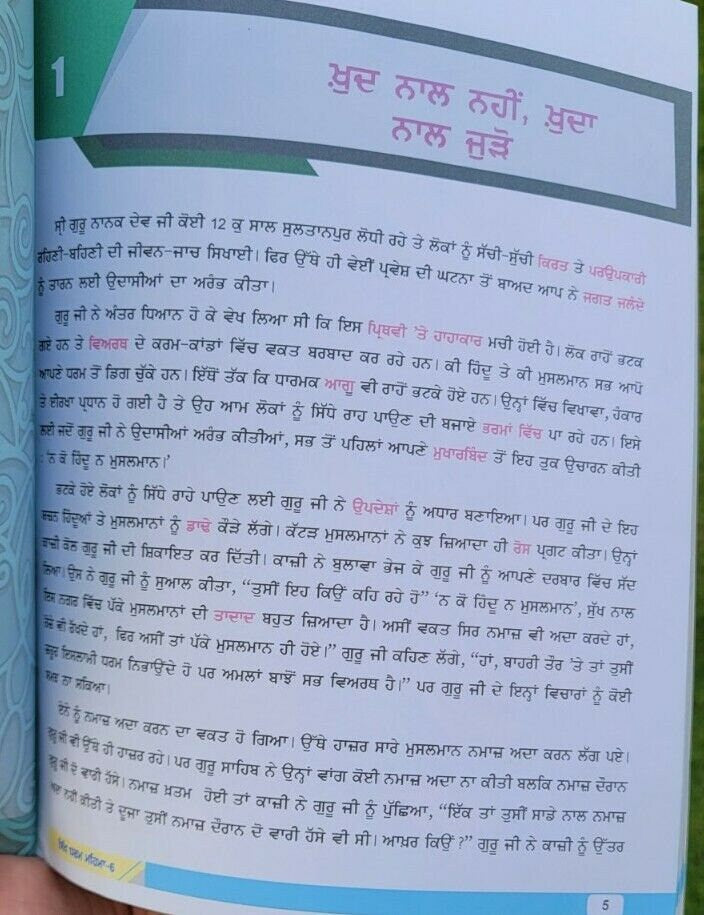 1
ਖ਼ੁਦ ਨਾਲ ਨਹੀਂ, ਖ਼ੁਦਾ
ਨਾਲ ਜੁੜੋ
ਸ੍ਰੀ ਗੁਰੂ ਨਾਨਕ ਦੇਵ ਜੀ ਕੋਈ 12 ਕੁ ਸਾਲ ਸੁਲਤਾਨਪੁਰ ਲੋਧੀ ਰਹੇ ਤੇ ਲੋਕਾਂ ਨੂੰ ਸੱਚੀ-ਸੁੱਚੀ ਕਿਰਤ ਤੇ ਪਰਉਪਕਾਰੀ
ਰਹਿਣੀ-ਬਹਿਣੀ ਦੀ ਜੀਵਨ-ਜਾਚ ਸਿਖਾਈ। ਫਿਰ ਉੱਥੇ ਹੀ ਵੇਈਂ ਪ੍ਰਵੇਸ਼ ਦੀ ਘਟਨਾ ਤੋਂ ਬਾਅਦ ਆਪ ਨੇ ਜਗਤ ਜਲੰਦੇ
ਨੂੰ ਤਾਰਨ ਲਈ ਉਦਾਸੀਆਂ ਦਾ ਅਰੰਭ ਕੀਤਾ।
ਗੁਰੂ ਜੀ ਨੇ ਅੰਤਰ ਧਿਆਨ ਹੋ ਕੇ ਵੇਖ ਲਿਆ ਸੀ ਕਿ ਇਸ ਪ੍ਰਿਥਵੀ 'ਤੇ ਹਾਹਾਕਾਰ ਮਚੀ ਹੋਈ ਹੈ। ਲੋਕ ਰਾਹੋਂ ਭਟਕ
ਗਏ ਹਨ ਤੇ ਵਿਅਰਥ ਦੇ ਕਰਮ-ਕਾਂਡਾਂ ਵਿੱਚ ਵਕਤ ਬਰਬਾਦ ਕਰ ਰਹੇ ਹਨ। ਕੀ ਹਿੰਦੂ ਤੇ ਕੀ ਮੁਸਲਮਾਨ ਸਭ ਆਪੋ
ਆਪਣੇ ਧਰਮ ਤੋਂ ਡਿਗ ਚੁੱਕੇ ਹਨ। ਇੱਥੋਂ ਤੱਕ ਕਿ ਧਾਰਮਕ ਆਗੂ ਵੀ ਰਾਹੋਂ ਭਟਕੇ ਹੋਏ ਹਨ। ਉਨ੍ਹਾਂ ਵਿੱਚ ਵਿਖਾਵਾ, ਹੰਕਾਰ
ਤੇ ਈਰਖਾ ਪ੍ਰਧਾਨ ਹੋ ਗਈ ਹੈ ਤੇ ਉਹ ਆਮ ਲੋਕਾਂ ਨੂੰ ਸਿੱਧੇ ਰਾਹ ਪਾਉਣ ਦੀ ਬਜਾਏ ਭਰਮਾਂ ਵਿੱਚ ਪਾ ਰਹੇ ਹਨ। ਇਸੇ
ਲਈ ਜਦੋਂ ਗੁਰੂ ਜੀ ਨੇ ਉਦਾਸੀਆਂ ਅਰੰਭ ਕੀਤੀਆਂ, ਸਭ ਤੋਂ ਪਹਿਲਾਂ ਆਪਣੇ ਮੁਖਾਰਬਿੰਦ ਤੋਂ ਇਹ ਤੁਕ ਉਚਾਰਨ ਕੀਤੀ
: 'ਨ ਕੋ ਹਿੰਦੂ ਨ ਮੁਸਲਮਾਨ।'
ਭਟਕੇ ਹੋਏ ਲੋਕਾਂ ਨੂੰ ਸਿੱਧੇ ਰਾਹੇ ਪਾਉਣ ਲਈ ਗੁਰੂ ਜੀ ਨੇ ਉਪਦੇਸ਼ਾਂ ਨੂੰ ਅਧਾਰ ਬਣਾਇਆ। ਪਰ ਗੁਰੂ ਜੀ ਦੇ ਇਹ
ਬਚਨ ਹਿੰਦੂਆਂ ਤੇ ਮੁਸਲਮਾਨਾਂ ਨੂੰ ਡਾਢੇ ਕੌੜੇ ਲੱਗੇ। ਕੱਟੜ ਮੁਸਲਮਾਨਾਂ ਨੇ ਕੁਝ ਜ਼ਿਆਦਾ ਹੀ ਰੋਸ ਪ੍ਰਗਟ ਕੀਤਾ। ਉਨ੍ਹਾਂ
ਕਾਜ਼ੀ ਕੋਲ ਗੁਰੂ ਜੀ ਦੀ ਸ਼ਿਕਾਇਤ ਕਰ ਦਿੱਤੀ। ਕਾਜ਼ੀ ਨੇ ਬੁਲਾਵਾ ਭੇਜ ਕੇ ਗੁਰੂ ਜੀ ਨੂੰ ਆਪਣੇ ਦਰਬਾਰ ਵਿੱਚ ਸੱਦ
ਲਿਆ। ਉਸ ਨੇ ਗੁਰੂ ਜੀ ਨੂੰ ਸੁਆਲ ਕੀਤਾ, "ਤੁਸੀਂ ਇਹ ਕਿਉਂ ਕਹਿ ਰਹੇ ਹੋ" 'ਨ ਕੋ ਹਿੰਦੂ ਨ ਮੁਸਲਮਾਨ', ਸੁੱਖ ਨਾਲ
ਇਸ ਨਗਰ ਵਿੱਚ ਪੱਕੇ ਮੁਸਲਮਾਨਾਂ ਦੀ ਤਾਦਾਦ ਬਹੁਤ ਜ਼ਿਆਦਾ ਹੈ। ਅਸੀਂ ਵਕਤ ਸਿਰ ਨਮਾਜ਼ ਵੀ ਅਦਾ ਕਰਦੇ ਹਾਂ,
ਰੋਜ਼ੇ ਵੀ ਰੱਖਦੇ ਹਾਂ, ਫਿਰ ਅਸੀਂ ਤਾਂ ਪੱਕੇ ਮੁਸਲਮਾਨ ਹੀ ਹੋਏ।" ਗੁਰੂ ਜੀ ਕਹਿਣ ਲੱਗੇ, "ਹਾਂ, ਬਾਹਰੀ ਤੌਰ 'ਤੇ ਤਾਂ ਤੁਸੀਂ
ਜ਼ਰੂਰ ਇਸਲਾਮੀ ਧਰਮ ਨਿਭਾਉਂਦੇ ਹੋ ਪਰ ਅਮਲਾਂ ਬਾਝੋਂ ਸਭ ਵਿਅਰਥ ਹੈ।" ਪਰ ਗੁਰੂ ਜੀ ਦੇ ਇਨ੍ਹਾਂ ਵਿਚਾਰਾਂ ਨੂੰ ਕੋਈ
ਸਮਝ ਨਾ ਸਕਿਆ।
ਏਨੇ ਨੂੰ ਨਮਾਜ਼ ਅਦਾ ਕਰਨ ਦਾ ਵਕਤ ਹੋ ਗਿਆ। ਉੱਥੇ ਹਾਜ਼ਰ ਸਾਰੇ ਮੁਸਲਮਾਨ ਨਮਾਜ਼ ਅਦਾ ਕਰਨ ਲੱਗ ਪਏ।
ਗੁਰੂ ਜੀ ਵੀ ਉੱਥੇ ਹੀ ਹਾਜ਼ਰ ਰਹੇ। ਪਰ ਗੁਰੂ ਸਾਹਿਬ ਨੇ ਉਨ੍ਹਾਂ ਵਾਂਗ ਕੋਈ ਨਮਾਜ਼ ਅਦਾ ਨਾ ਕੀਤੀ ਬਲਕਿ ਨਮਾਜ਼ ਦੌਰਾਨ
ਗੁਰੂ ਜੀ ਦੋ ਵਾਰੀ ਹੱਸੇ। ਨਮਾਜ਼ ਖ਼ਤਮ ਹੋਈ ਤਾਂ ਕਾਜ਼ੀ ਨੇ ਗੁਰੂ ਜੀ ਨੂੰ ਪੁੱਛਿਆ, "ਇੱਕ ਤਾਂ ਤੁਸੀਂ ਸਾਡੇ ਨਾਲ ਨਮਾਜ਼
ਅਦਾ ਨਹੀਂ ਕੀਤੀ ਤੇ ਦੂਜਾ ਤੁਸੀਂ ਨਮਾਜ਼ ਦੌਰਾਨ ਦੋ ਵਾਰੀ ਹੱਸੇ ਵੀ ਸੀ। ਆਖ਼ਰ ਕਿਉਂ ?" ਗੁਰੂ ਜੀ ਨੇ ਕਾਜ਼ੀ ਨੂੰ ਉੱਤਰ
ਸਿੱਖ ਧਰਮ ਮਹਿਮਾ-6
5